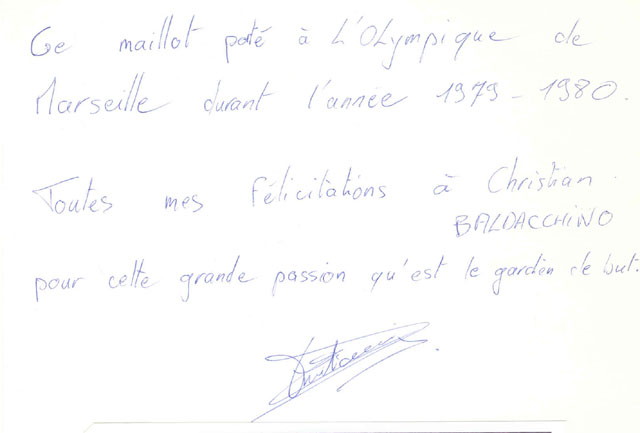 Ce maillot porté à L'OLympique de
Marseille durant l'année 1979-1980.
Toutes mes félicitations à Christian
BALDACCHINO
pour cette grande passion qu'est le gardien de but.